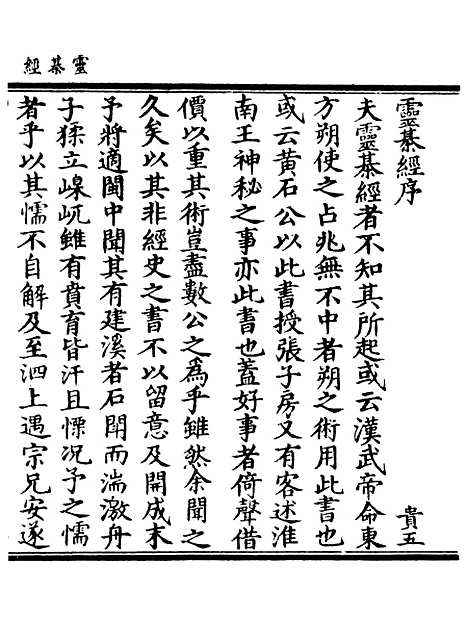 靈棊經
靈棊經序
貴五
夫靈棊經者不知其所起或云漢武帝命東
方朔使之占兆無不中者朔之術用此書也
或云黄石公以此書授張子房又有客述淮
南王神秘之事亦此書也蓋好事者倚聲借
價以重其術豈盡數公之為乎雖然余聞之
久矣以其非經史之書不以留意及開成末
予將適閩中聞其有建溪者石閗而湍激舟
子猱立嵲屼雖有賁育皆汗且慄况予之懦
者乎以其懦不自解及至泗上遇宗兄安遂